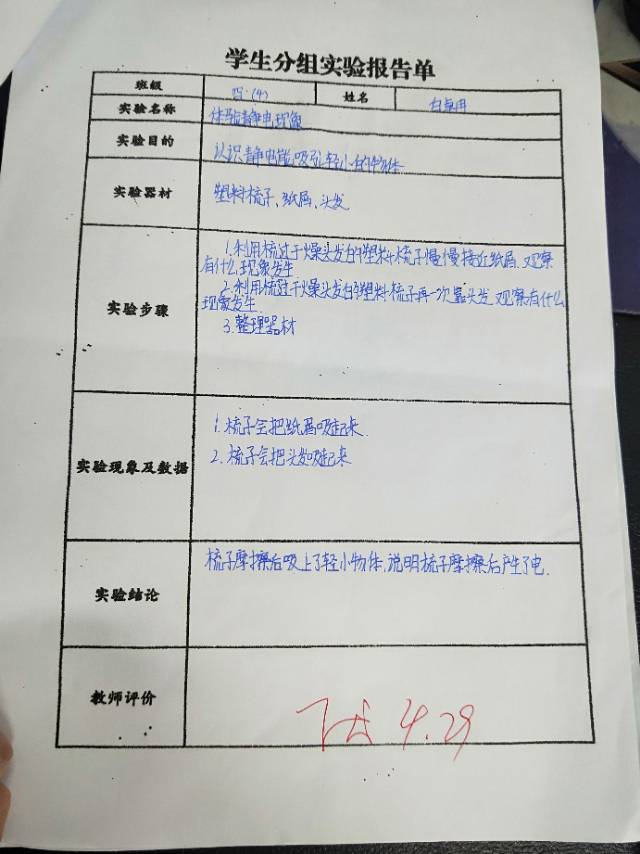 学生分组实验报告单
班级 四.(4) 姓名
实验名称 体验静电现象
实验目的 认识静电能吸引轻小的物体
实验器材 塑料梳子、纸屑、头发
实验步骤
1.利用梳过干燥头发的塑料梳子慢慢接近纸屑、观察
有什么现象发生
2.利用梳过干燥头发的塑料梳子再一次靠头发,观察有什么
现象发生.
3.整理器材
实验现象及数据
1.梳子会把纸屑吸起来.
2.梳子会把头发吸起来
实验结论
梳子摩擦后吸上了轻小物体,说明梳子摩擦后产生了电.
教师评价
4.29